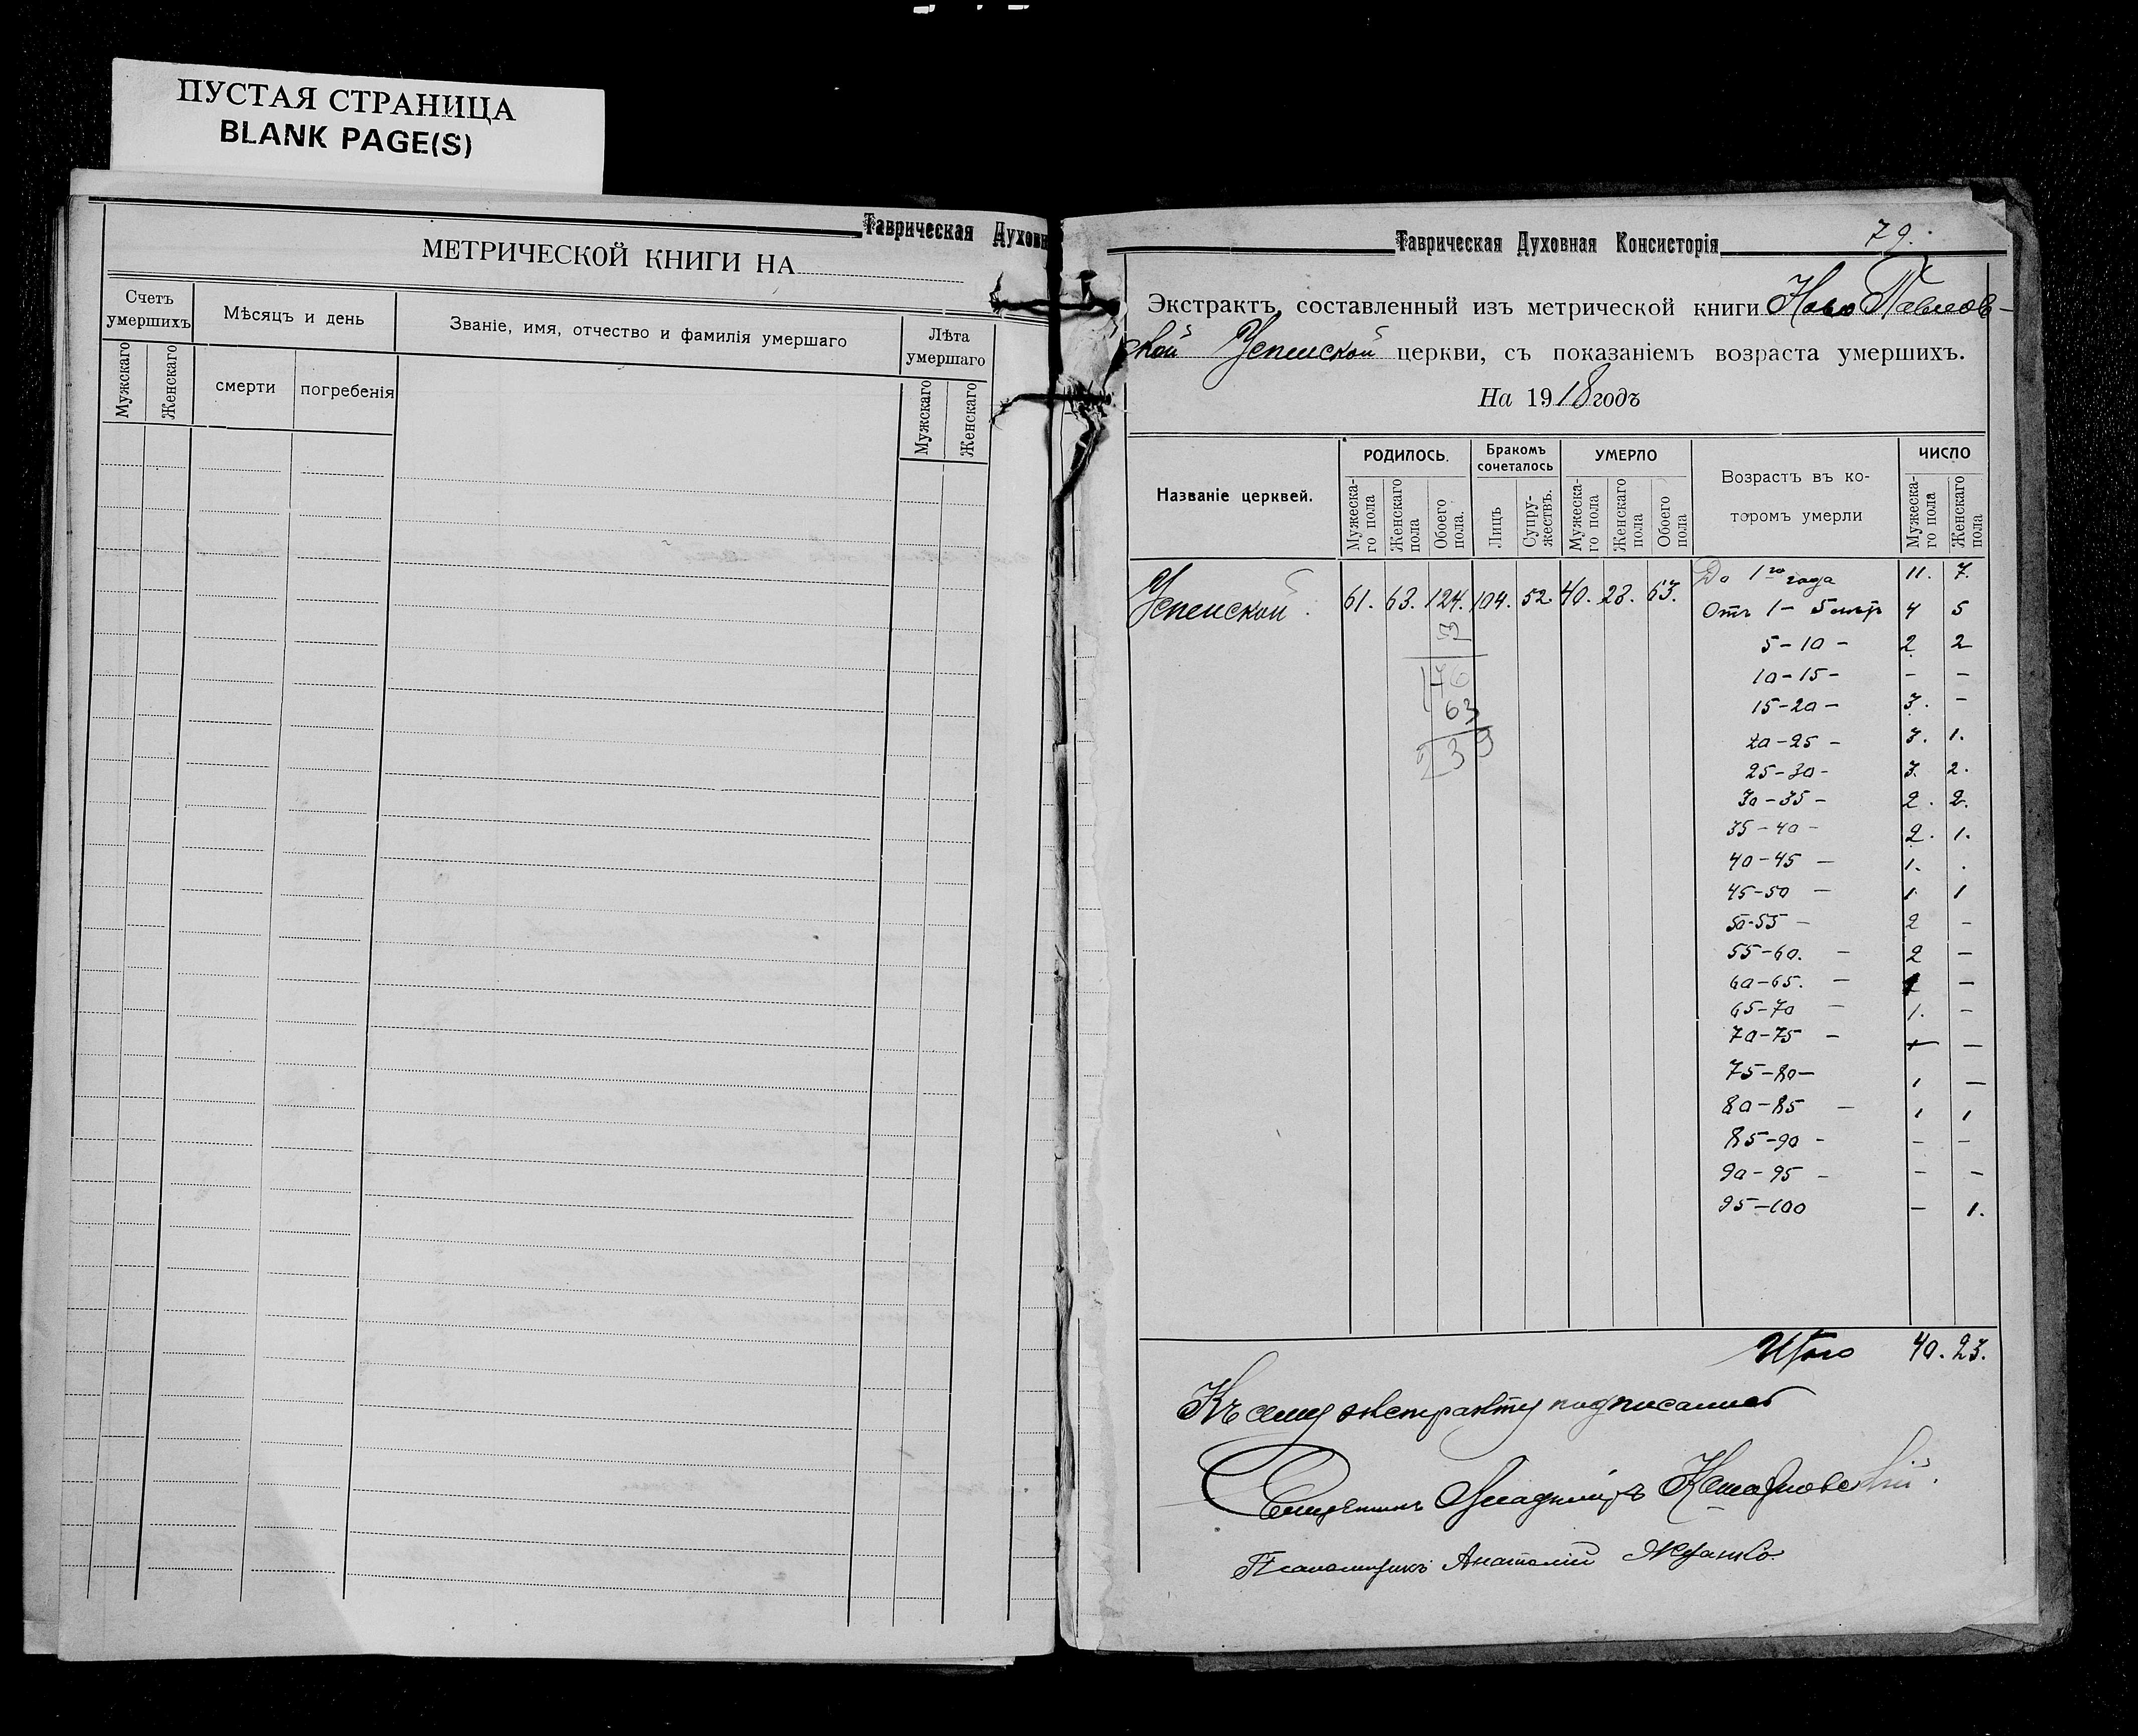 ПУСТАЯ СТРАНИЦА
BLANK PAGE(S)
Таврическая Духовн
МЕТРИЧЕСКОЙ КНИГИ НА
Счетъ умершихъ
Мѣсяцъ и день
Званіе, имя, отчество и фамилія умершаго
Лѣта умершаго
Мужскаго
Женскаго
смерти
погребенія
Мужскаго
Женскаго
Таврическая Духовная Консисторія
79.
Экстрактъ, составленный изъ метрической книги Ново Павлов-
ской Успенской церкви, съ показаніемъ возраста умершихъ.
На 1918 годъ
Названіе церквей.
РОДИЛОСЬ.
Бракомъ сочеталось
УМЕРЛО
Возрастъ въ ко-
торомъ умерли
ЧИСЛО
Мужеска-го пола
Женскаго пола
Обоего пола.
Лицъ
Супру-жествъ.
Мужеска-го пола
Женскаго пола
Обоего пола
Мужеска-го пола
Женскаго пола
Успенской. 61. 63. 124. 104. 52. 40. 23. 63.
52
176
63
239
До 1го года 11. 7.
Отъ 1 - 5 4 5
5-10 - 2. 2
10-15 - - -
15-20 - 3. -
20-25 - 3. 1.
25-30 - 3. 2.
30-35 - 2. 2.
35-40 - 2. 1.
40-45 - 1. .
45-50 - 1. 1
50-55 - 2 -
55-60. - 2 -
60-65. - 1 -
65-70 - 1. -
70-75 - - -
75-80 - 1 -
80-85 - 1 1
85-90 - - -
90-95 - - -
95-100 - 1.
Итого 40. 23.
Къ сему экстракту подписались
Священникъ Владиміръ
Псаломщикъ Анатолій